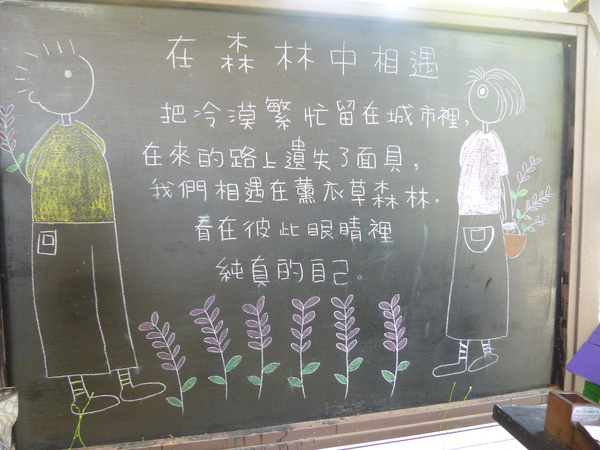 在森林中相遇
把冷漠繁忙留在城市裡，
在來的路上遺失了面具，
我們相遇在薰衣草森林．
看在彼此眼睛裡
純真的自己。